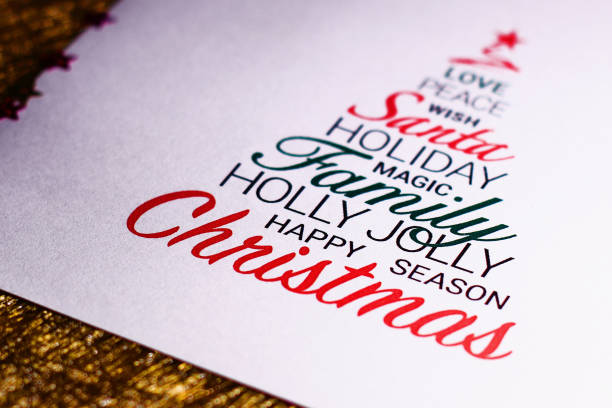 LOVE
PEACE
WISH
Santa
HOLIDAY
MAGIC
Family
HOLLY JOLLY
HAPPY SEASON
Christmas